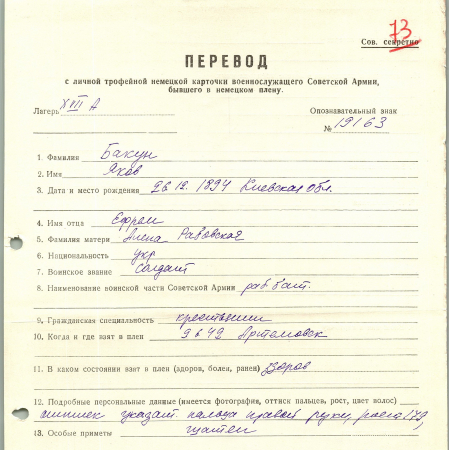 73
Сов. секретно
ПЕРЕВОД
с личной трофейной немецкой карточки военнослужащего Советской Армии,
бывшего в немецком плену.
Лагерь XVII А
Опознавательный знак
№ 19163
1. Фамилие Бакун
2. Имя Яков
3. Дата и место рождения 26.12.1894 Киевская обл.
4. Имя отца Ефрем
5. Фамилия матери Елена Равовская
6. Национальность укр
7. Воинское звание солдат
8. Наименование воинской части Советской Армии раб бат.
9. Гражданская специальность крестьянин
10. Когда и где взят в плен 9 6 42 Артемовск
11. В каком состоянии взят в плен (здоров, болен, ранен) здоров
12. Подробные персональные данные (имеется фотография, оттиск пальцев, рост, цвет волос)
указат. пальца правой руки, рост 172,
13. Особые приметы